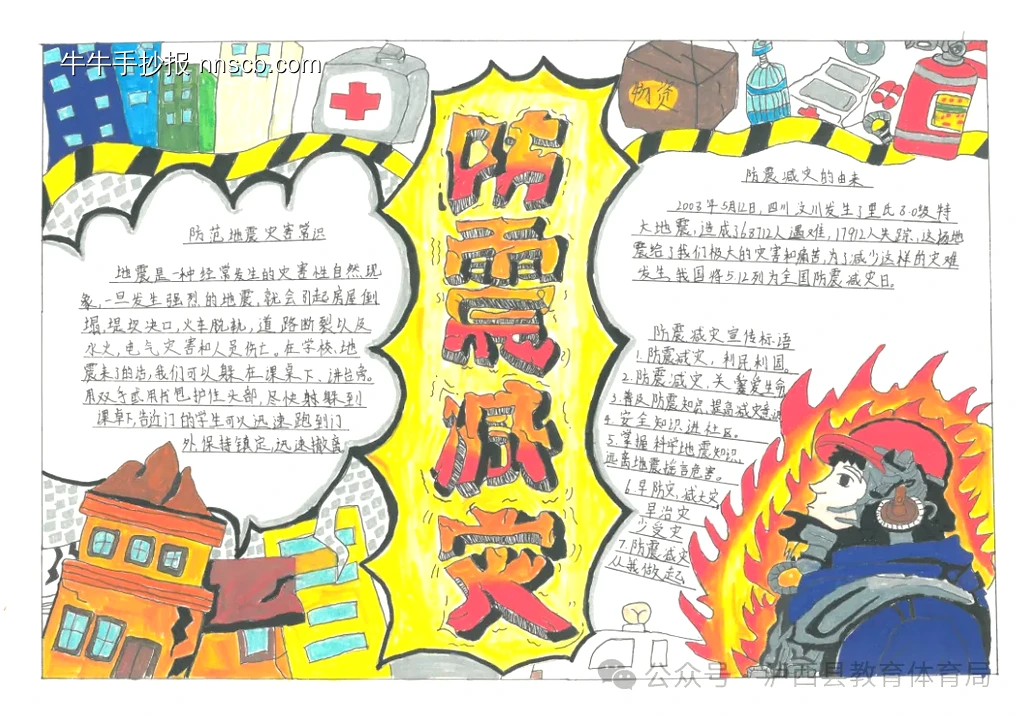 牛牛手抄报 nnscb.com
物资
防震减灾
防范地震灾害常识
地震是一种经常发生的灾害性自然现
象,一旦发生强烈的地震,就会引起房屋倒
塌,堤坝决口,火车脱轨,道路断裂以及
水火,电气灾害和人员伤亡。在学校,地
震来了的话,我们可以躲在课桌下、讲台旁。
用双手或用书包护住头部,尽快躲到
课桌下,靠近门的学生可以迅速跑到门
外,保持镇定,迅速撤离
防震减灾的由来
2008年5月12日,四川汶川发生了里氏8.0级特
大地震,造成了68712人遇难,17912人失踪,这场地
震给了我们极大的灾害和痛苦,为了减少这样的灾难
发生,我国将5.12列为全国防震减灾日。
防震减灾宣传标语
1.防震减灾,利民利国。
2.防震减灾,关爱生命
3.普及防震知识,提高减灾意识
4.安全知识进社区。
5.掌握科学地震知识,
远离地震谣言危害。
6.早防灾,减大灾
早治灾
少受灾
7.防震减灾
从我做起
公众号·泸西县教育体育局